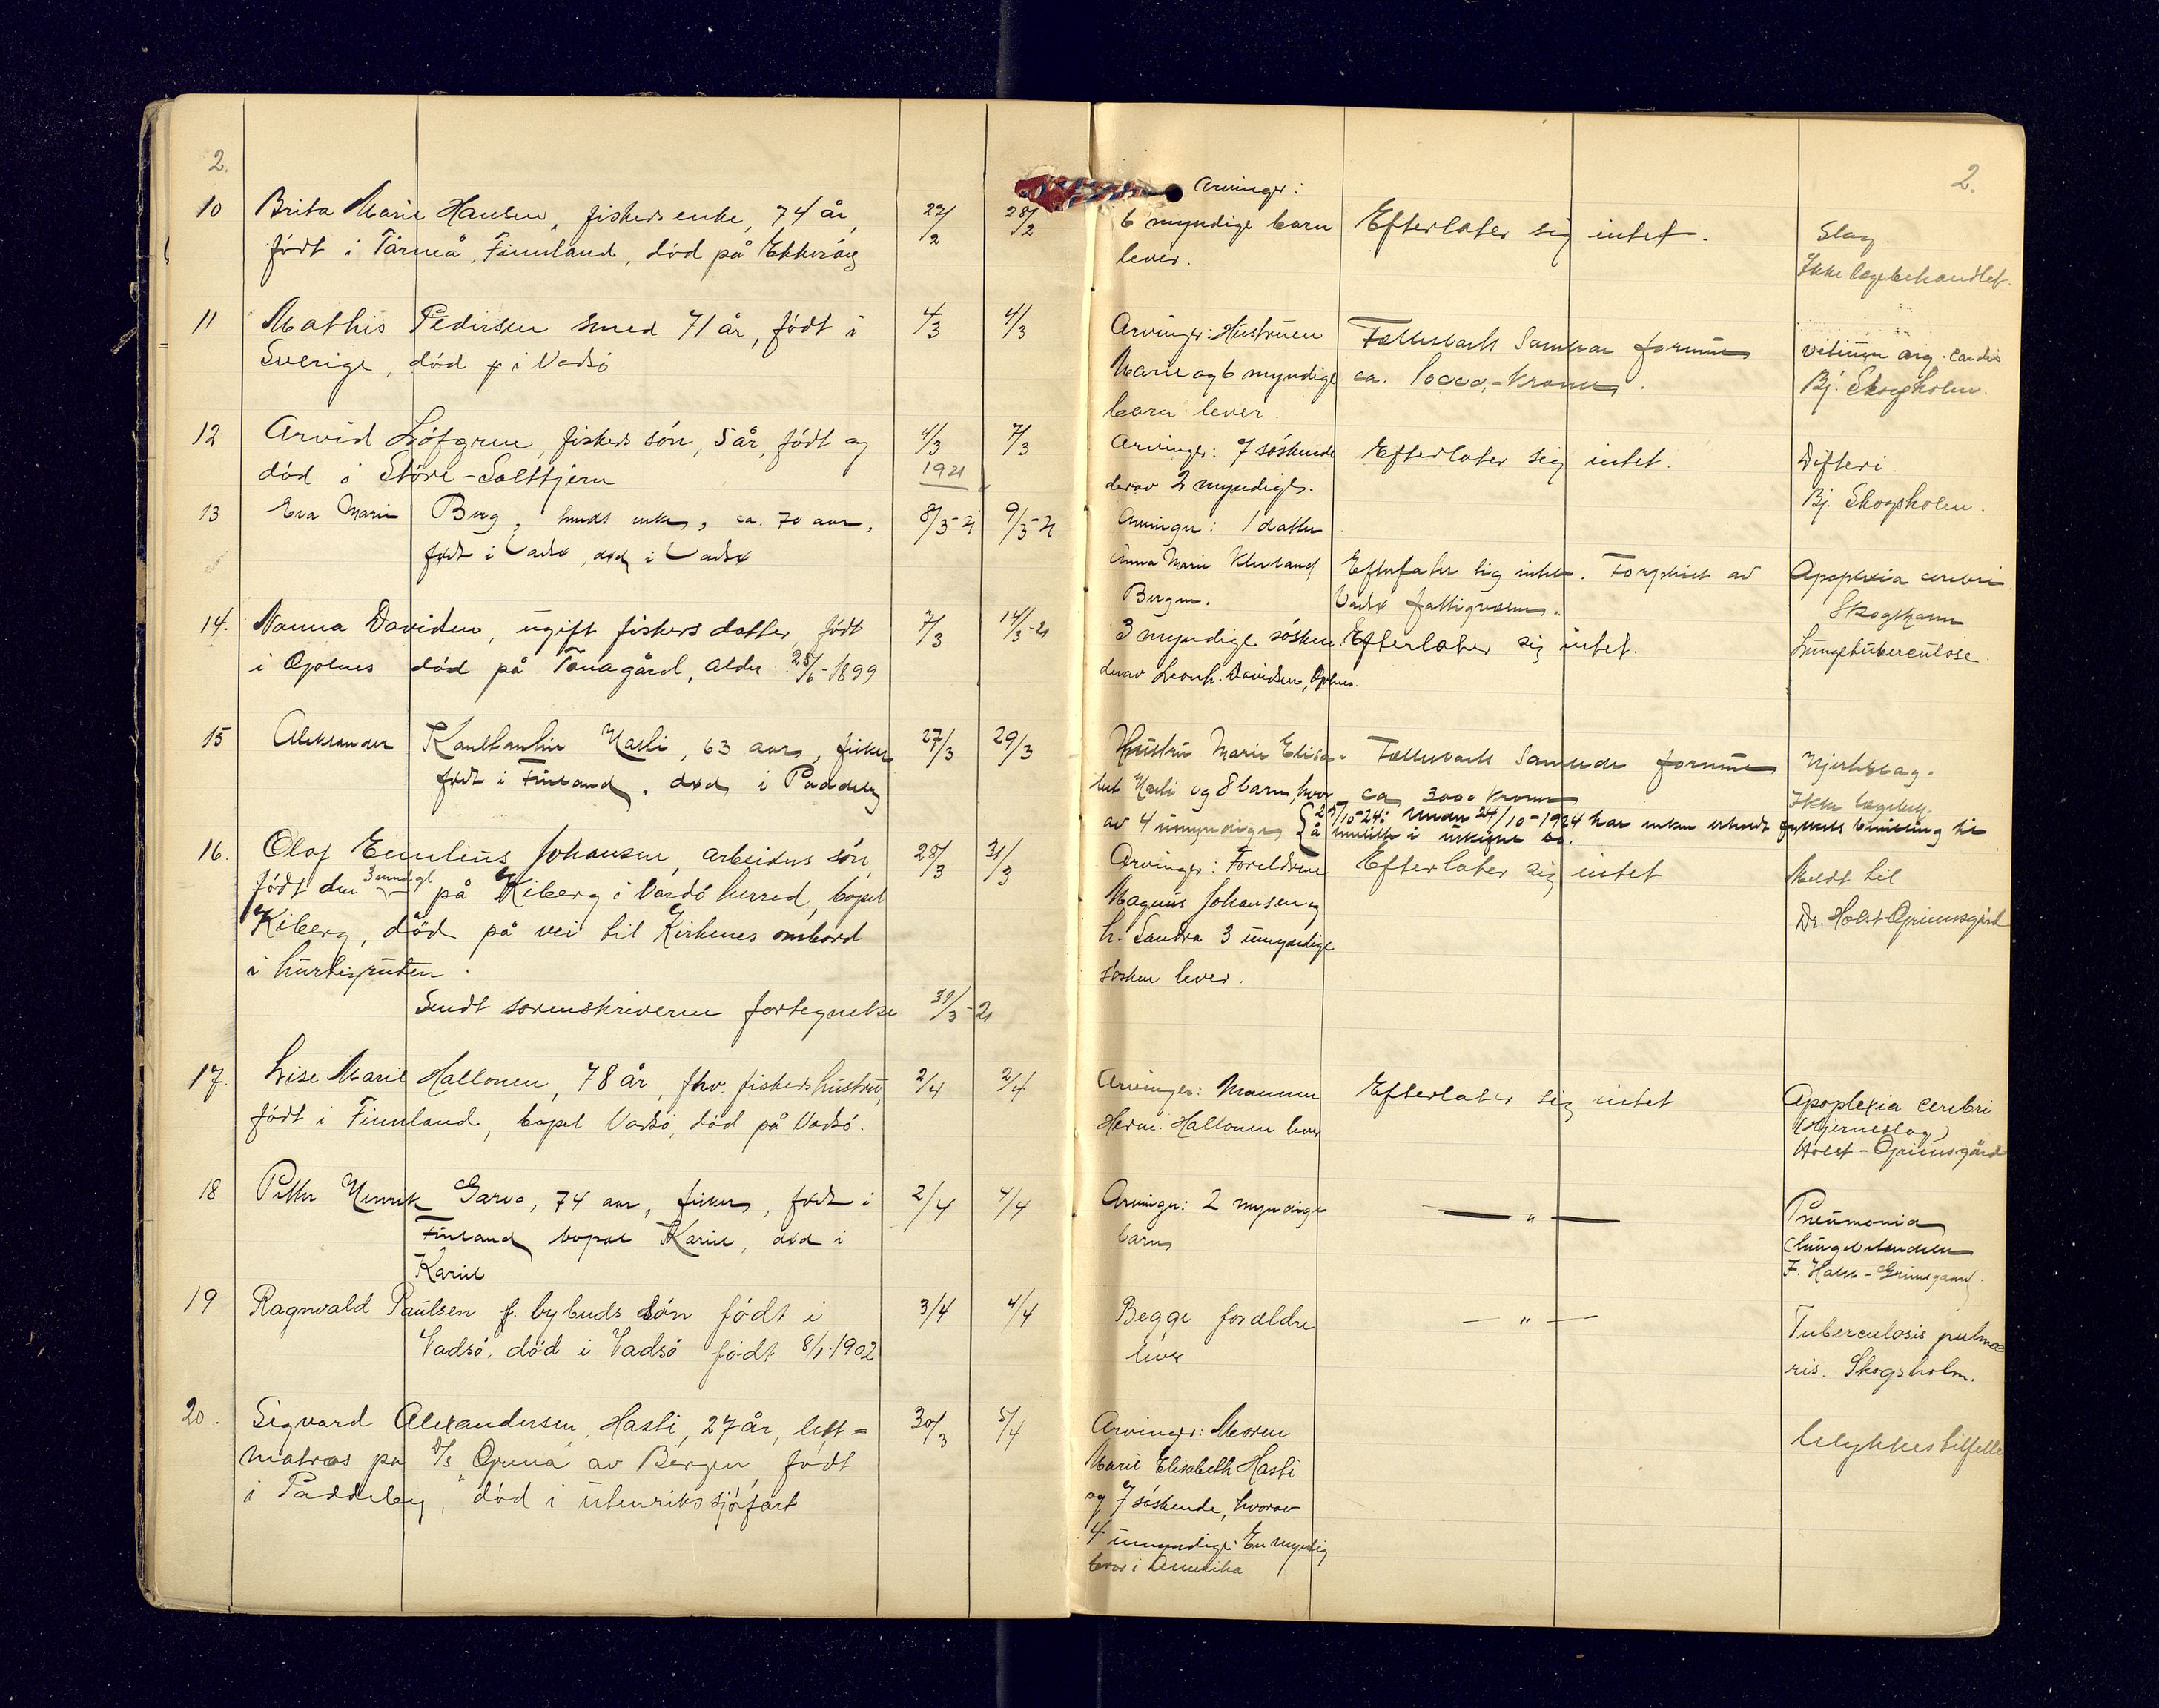 2.
2.
10 Brita Marie Hansen, fiskers enke, 74 år,
født i Tårneå, Finnland, død på Ekkerøy
27/2 28/2
Arvinger:
6 myndige barn
lever.
Efterlater sig intet.
Slag.
Ikke lægebehandlet.
11 Mathis Pedersen smed 71 år, født i
Sverige, død i Vadsö
4/3 4/3
Arvinger: Hustruen
Marie og 6 myndige
barn lever.
Fællesboets samlede formue
ca. 10000,- kroner.
vitium org. cordis
Bj. Skogsholm.
12 Arvid Löfgren, fiskers sön, 5 år, födt og
död i Störe-Salttjern
4/3 7/3
1921
Arvinger: 7 söskende
derav 2 myndige.
Efterlater sig intet.
Difteri
Bj. Skogsholm.
13 Eva Marie Berg, enke, ca. 70 aar,
født i Vadsø, død i Vadsø
8/3-21 9/3-21
Arvinger: 1 datter
Anna Marie
Bergen.
Efterlater sig intet. Forpleiet av
Vadsø fattigvæsen.
Apoplexia cerebri
Skogsholm
14. Nanna Davidsen, ugift fiskers datter, födt
i Golnes död på Tanagård, alder 25/6-1899
7/3 14/3-21
3 myndige söskende
derav Leonh. Davidsen, Golnes.
Efterlater sig intet.
Lungetuberculose.
15 Aleksander Konstantin Hasti, 63 aar, fisker
født i Finland, død i Paddeby
27/3 29/3
Hustru Marie Elisa-
bet Hasti og 8 barn, hvor
av 4 umyndige
Fællesboets samlede formue
ca 3000 kroner
{ 25/10-24: Under 24/10-1924 har enken erholdt fylkets bevilling til
å hensitte i uskiftet bo.
Hjerteslag.
Ikke lægebeh.
16. Olaf Emelius Johansen, arbeiders sön,
födt den 3 mndgl på Kiberg i Vardö herred, bopel
Kiberg, död på vei til Kirkenes ombord
i hurtigruten.
28/3 31/3
Arvinger: Foreldrene
Magnus Johansen og
h. Sandra 3 umyndige
søsken lever.
Efterlater sig intet
Meldt til
Dr. Holst-Grimsgård
Sendt sorenskriveren fortegnelse 31/3-21
17. Lise Marie Hallonen, 78 år, fhv. fiskers hustru,
födt i Finnland, bopel Vadsö, död på Vadsö.
2/4 2/4
Arvinger: Mannen
Herm. Hallonen lever
Efterlater sig intet
Apoplexia cerebri
(Hjerneslag)
Holst-Grimsgård
18 Petter Henrik Garvo, 74 aar, fisker, født i
Finland bopæl Kariel, død i
Kariel
2/4 4/4
Arvinger: 2 myndige
barn
— " —
Pneumonia
(lungebetendelse
F. Holst-Grimsgaard.
19 Ragnvald Paulsen f. bybuds sön födt i
Vadsö. död i Vadsö födt 8/1-1902
3/4 4/4
Begge forældre
lever
— " —
Tuberculosis pulmo
ris. Skogsholm.
20. Sigvard Alexandersen Hasti, 27 år, lett-
matros på D/s "Gruna" av Bergen, födt
i Paddeby, död i utenrikssjöfart
30/3 5/4
Arvinger: Moren
Marie Elisabeth Hasti
og 7 söskende, hvorav
4 umyndige. En myndig
bror i Amerika
Ulykkestilfelle